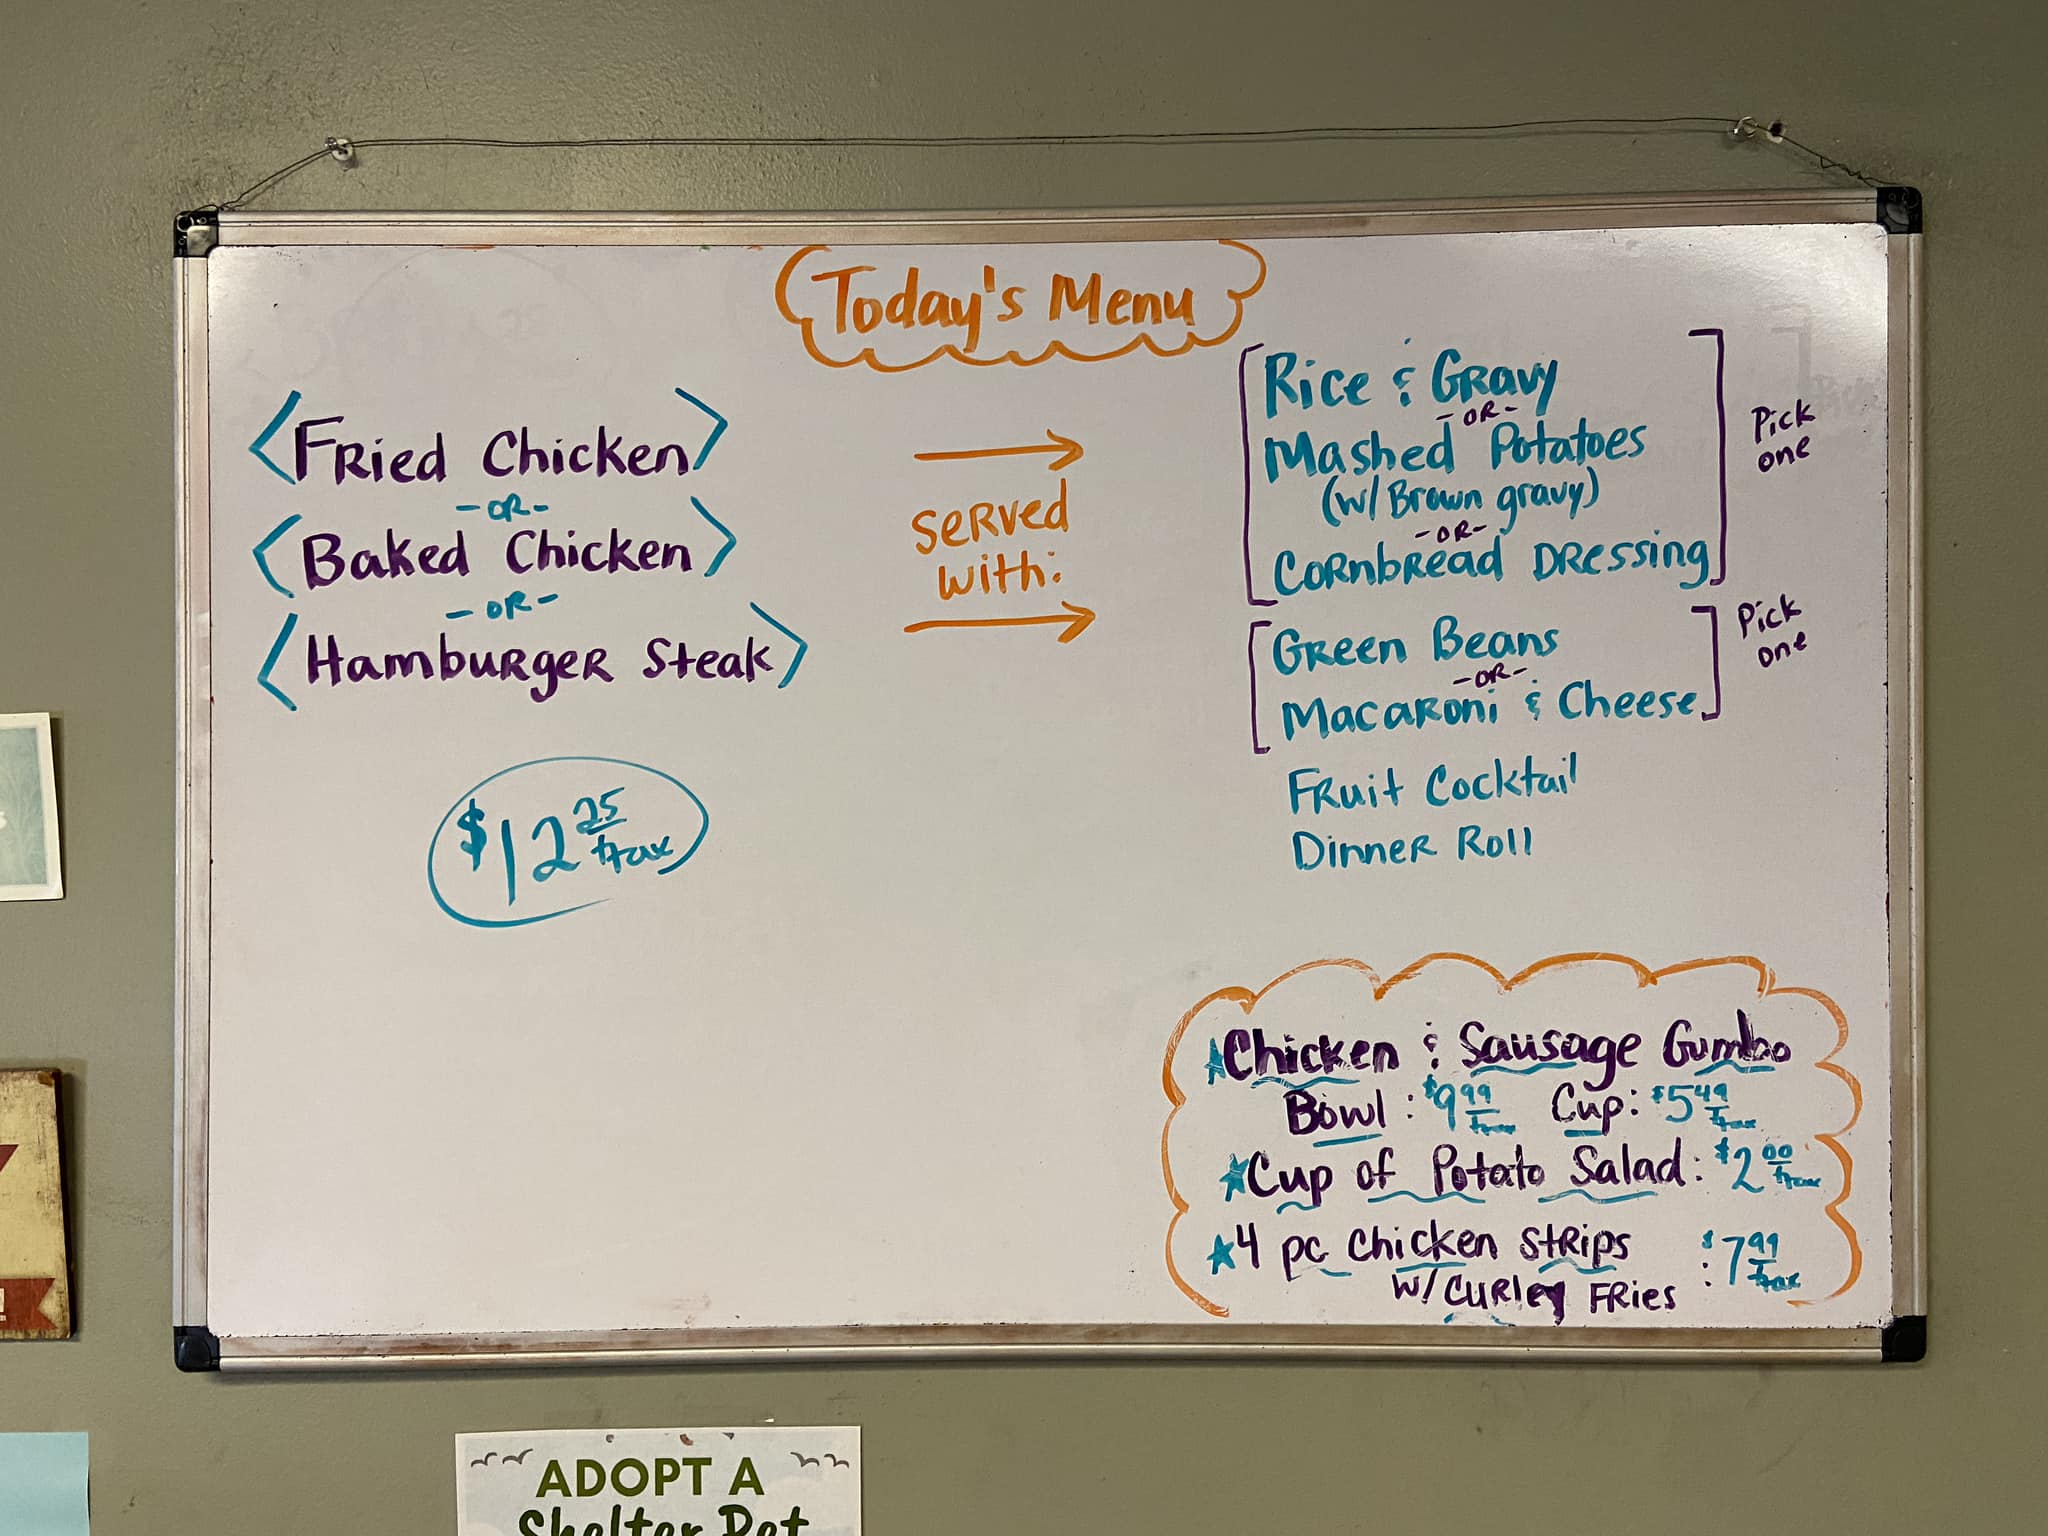 Today's Menu
Fried Chicken
-OR-
Baked Chicken
-OR-
Hamburger Steak
$12.25 +tax
served
with:
Rice & Gravy
-OR-
Mashed Potatoes
(w/ Brown gravy)
-OR-
Cornbread Dressing
Pick
one
Green Beans
-OR-
Macaroni & Cheese
Pick
one
Fruit Cocktail
Dinner Roll
Chicken & Sausage Gumbo
Bowl: $9.99 +tax Cup: $5.49 +tax
Cup of Potato Salad: $2.00 +tax
4 pc Chicken Strips : $7.99 +tax
w/ Curley Fries
ADOPT A
Shelter Pet